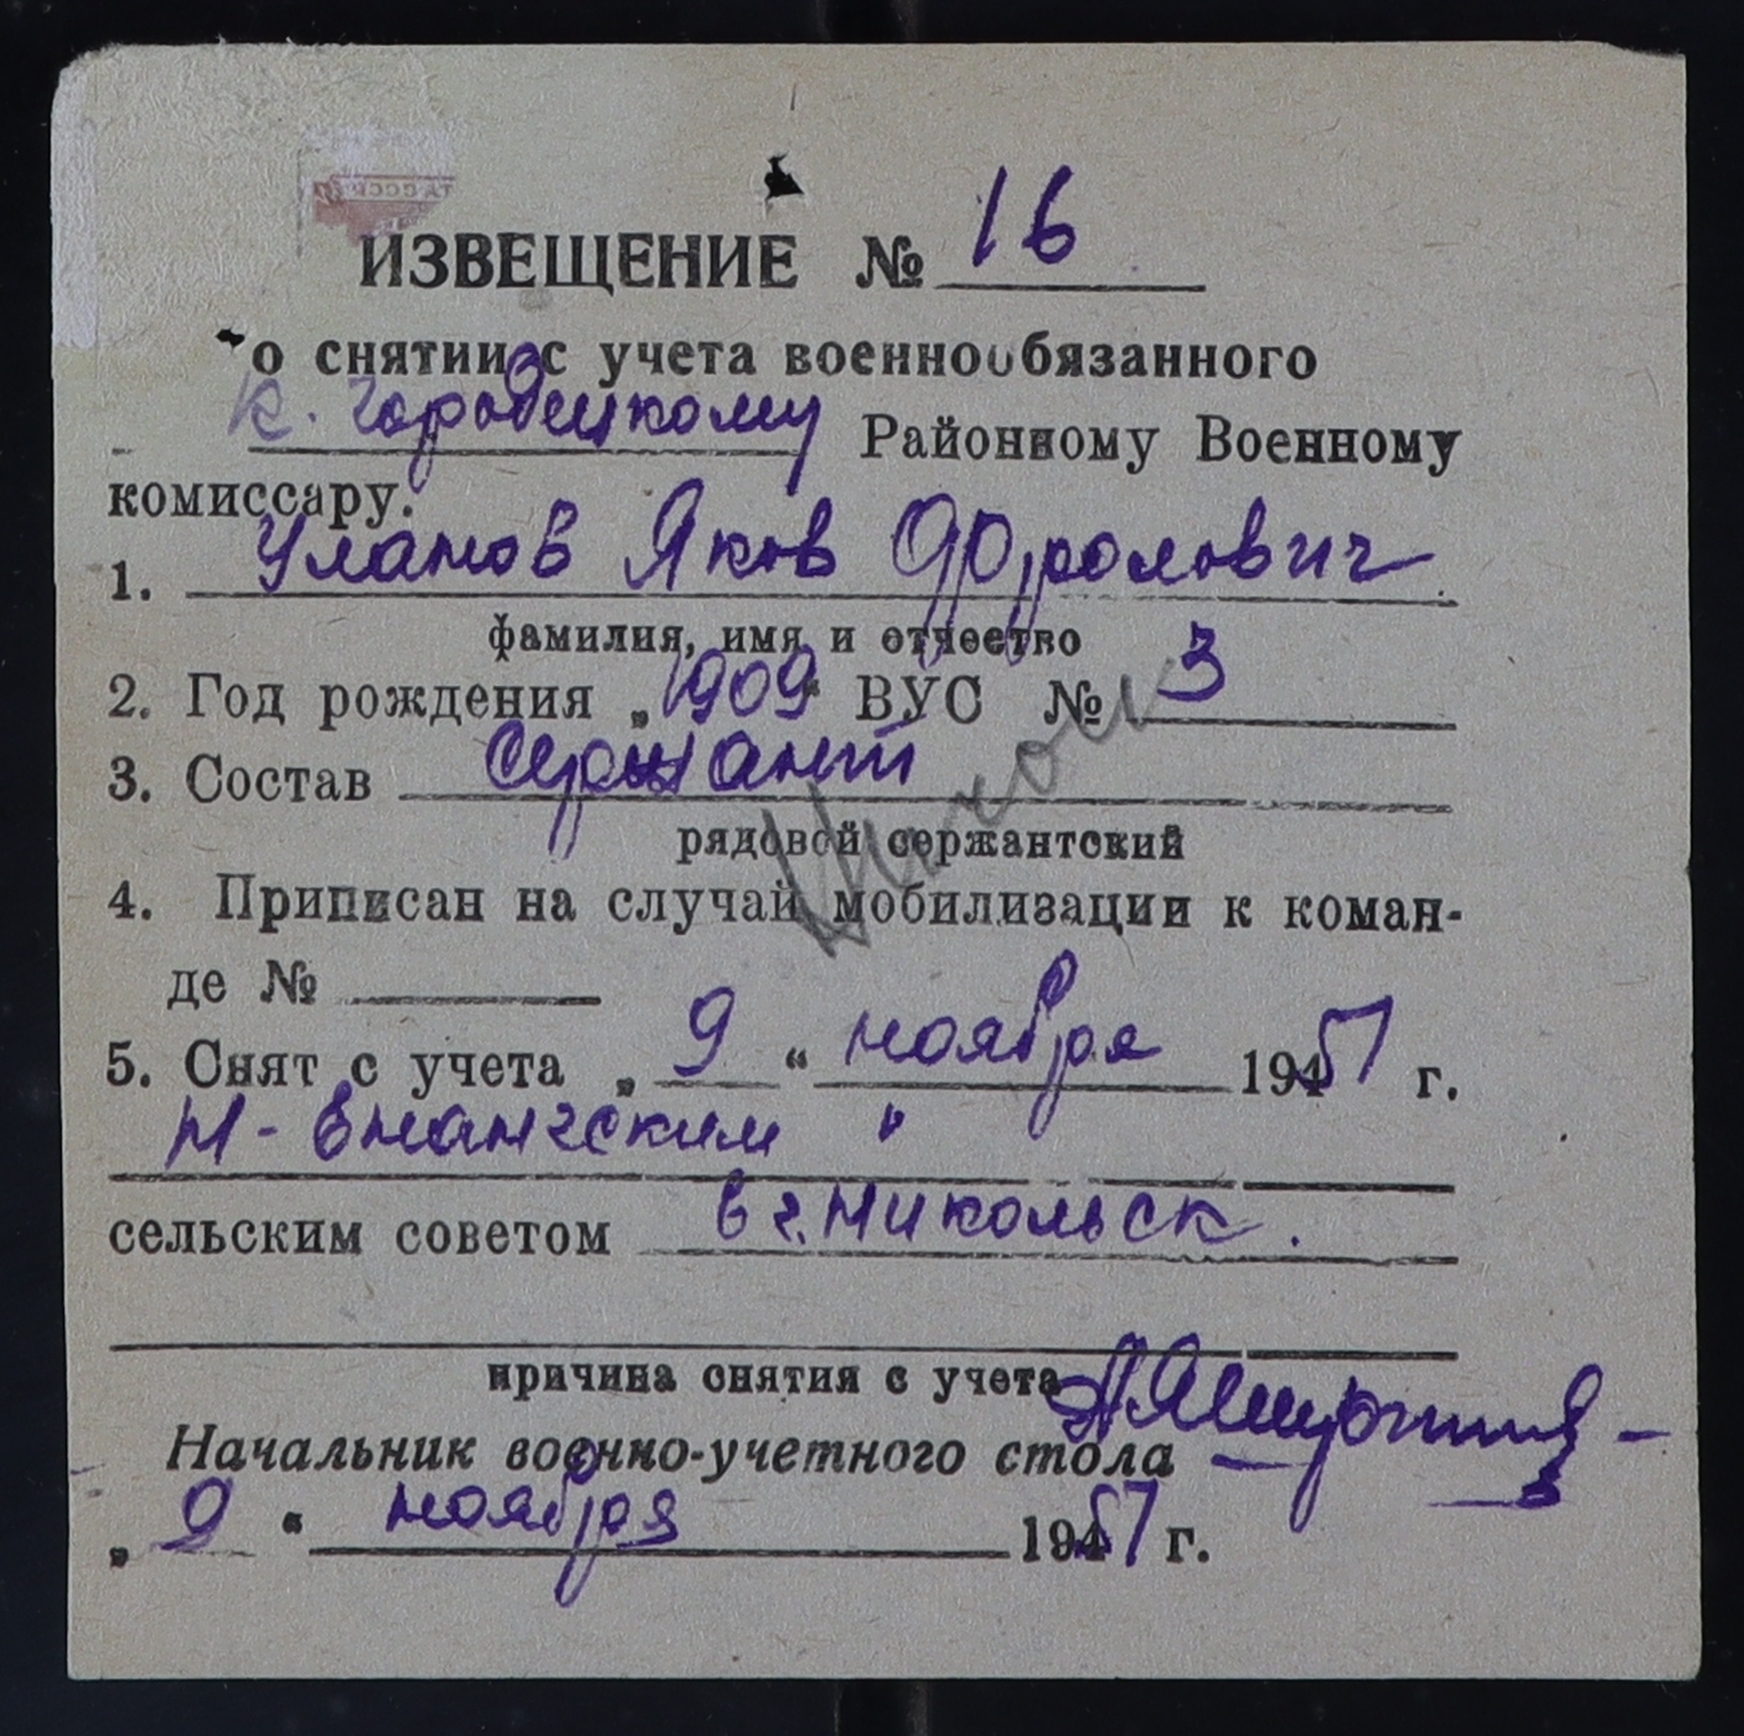 ИЗВЕЩЕНИЕ № 16
о снятии с учета военнообязанного
К. Городецкому Районному Военному
комиссару.
1. Уланов Яков Фролович
фамилия, имя и отчество
2. Год рождения „1909“ ВУС № 3
3. Состав Сержант
рядовой сержантский
4. Приписан на случай мобилизации к коман-
де №
5. Снят с учета „9“ ноября 1951 г.
Н-Енангским "
сельским советом в г. Никольск.
причина снятия с учета
Начальник военно-учетного стола
„9“ ноября 1951 г.